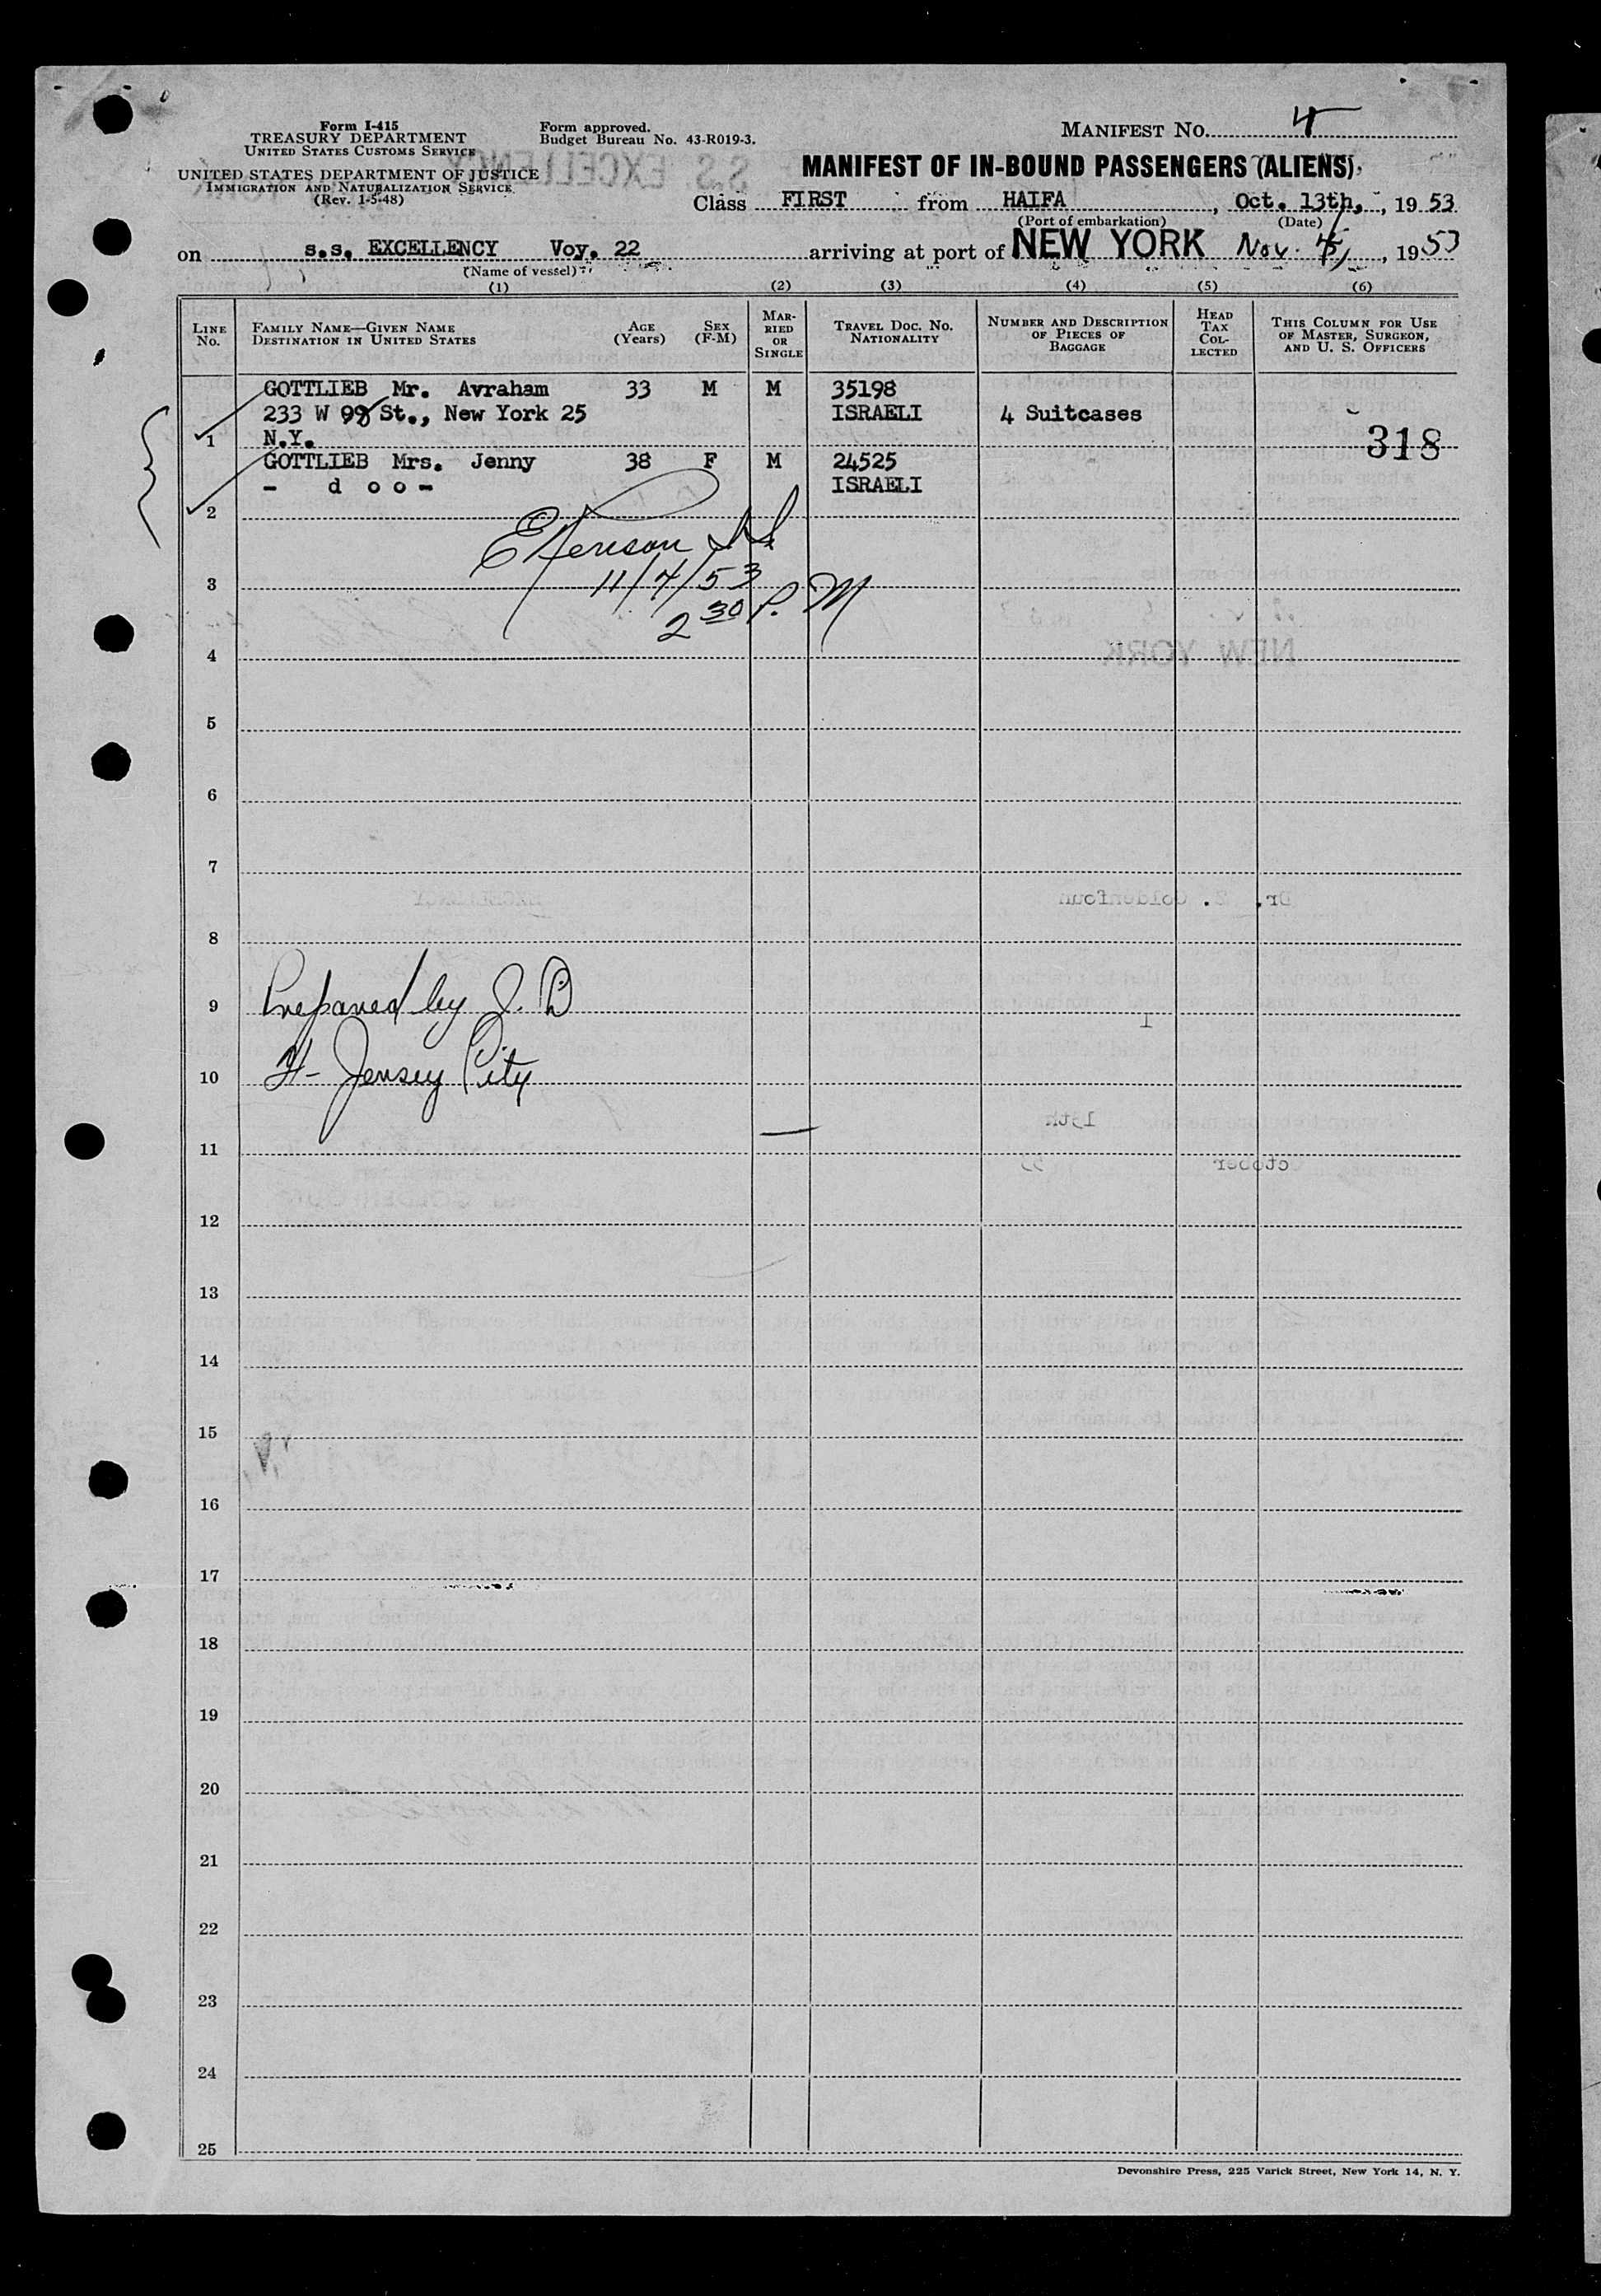 Form I-415
TREASURY DEPARTMENT
UNITED STATES CUSTOMS SERVICE
UNITED STATES DEPARTMENT OF JUSTICE
IMMIGRATION AND NATURALIZATION SERVICE
(Rev. 1-5-48)
Form approved.
Budget Bureau No. 43-R019-3.
MANIFEST NO. 4
MANIFEST OF IN-BOUND PASSENGERS (ALIENS)
Class FIRST from HAIFA, Oct. 13th, 1953
(Port of embarkation) (Date)
on s.s. EXCELLENCY Voy. 22 arriving at port of NEW YORK Nov. 4, 1953
(Name of vessel)
(1) (2) (3) (4) (5) (6)
LINE NO.
FAMILY NAME—GIVEN NAME
DESTINATION IN UNITED STATES
AGE (Years)
SEX (F-M)
MARRIED OR SINGLE
TRAVEL DOC. NO. NATIONALITY
NUMBER AND DESCRIPTION OF PIECES OF BAGGAGE
HEAD TAX COLLECTED
THIS COLUMN FOR USE OF MASTER, SURGEON, AND U. S. OFFICERS
GOTTLIEB Mr. Avraham 33 M M 35198
233 W 99 St., New York 25 ISRAELI 4 Suitcases
1 N.Y. 318
GOTTLIEB Mrs. Jenny 38 F M 24525
- d o o - ISRAELI
2
11/4/53
3
2 30 P. M
4
5
6
7
8
Prepared by J. B
9
Jersey City
10
11
12
13
14
15
16
17
18
19
20
21
22
23
24
25
Devonshire Press, 225 Varick Street, New York 14, N. Y.